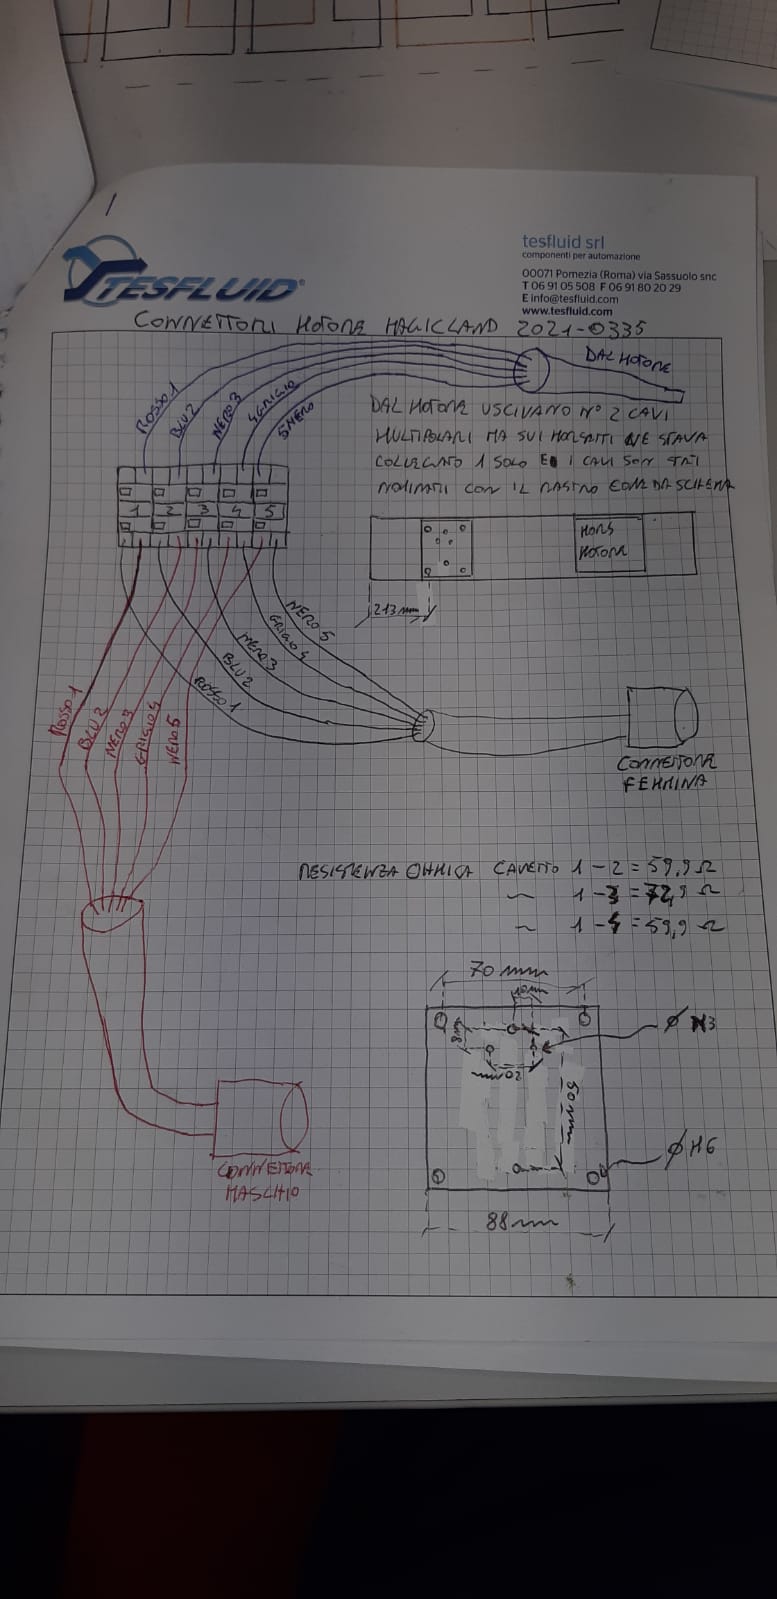 1
TESFLUID®
tesfluid srl
componenti per automazione
00071 Pomezia (Roma) via Sassuolo snc
T 06 91 05 508 F 06 91 80 20 29
E info@tesfluid.com
www.tesfluid.com
CONNETTORI MOTORE MAGICLAND 2021-0335
DAL MOTORE
ROSSO 1
BLU 2
NERO 3
4 GRIGIO
5 NERO
DAL MOTORE USCIVANO N° 2 CAVI
MULTIPOLARI MA SUI MORSETTI NE STAVA
COLLEGATO 1 SOLO E I CAVI SON
CON IL NASTRO COME DA SCHEMA
1 2 3 4 5
MORS
MOTORE
213 mm
NERO 5
GRIGIO 4
NERO 3
BLU 2
ROSSO 1
ROSSO 1
BLU 2
NERO 3
GRIGIO 4
NERO 5
CONNETTORE
FEMMINA
RESISTENZA OHMICA CAVETTO 1 - 2 = 59,9 Ω
~ 1 - 3 = 72,9 Ω
~ 1 - 4 = 59,9 Ω
70 mm
10 mm
8 mm
ø M3
20 mm
60 mm
ø M6
88 mm
CONNETTORE
MASCHIO